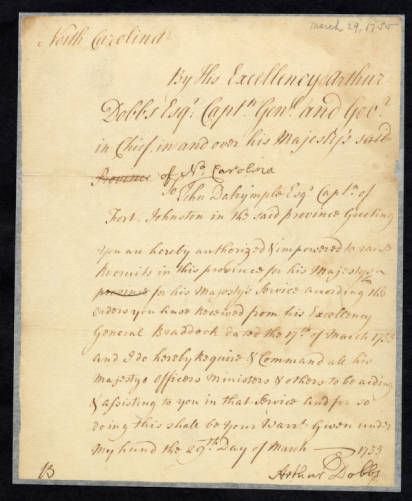 March 29, 1755
North Carolina
By His Excellency Arthur
Dobbs Esqr. Captn. Genl. and Govr.
in Chief, in and over his Majesty's said
Province of No. Carolina
To John Dalrymple Esqr. Captn. of
Fort Johnston in the said province Greeting
You are hereby authorized & impowered to raise
Recruits in this province for his Majestys
province for his Majesty's Service according the
orders you have Received from his Excellency
General Braddock dated the 17th. of March 1755
and I do hereby Require & Command all his
Majestys officers Ministers & others to be aiding
& assisting to you in that Service and for so
doing this shall be your Warrt. Given under
My hand the 29th. Day of March 1755
Arthur Dobbs